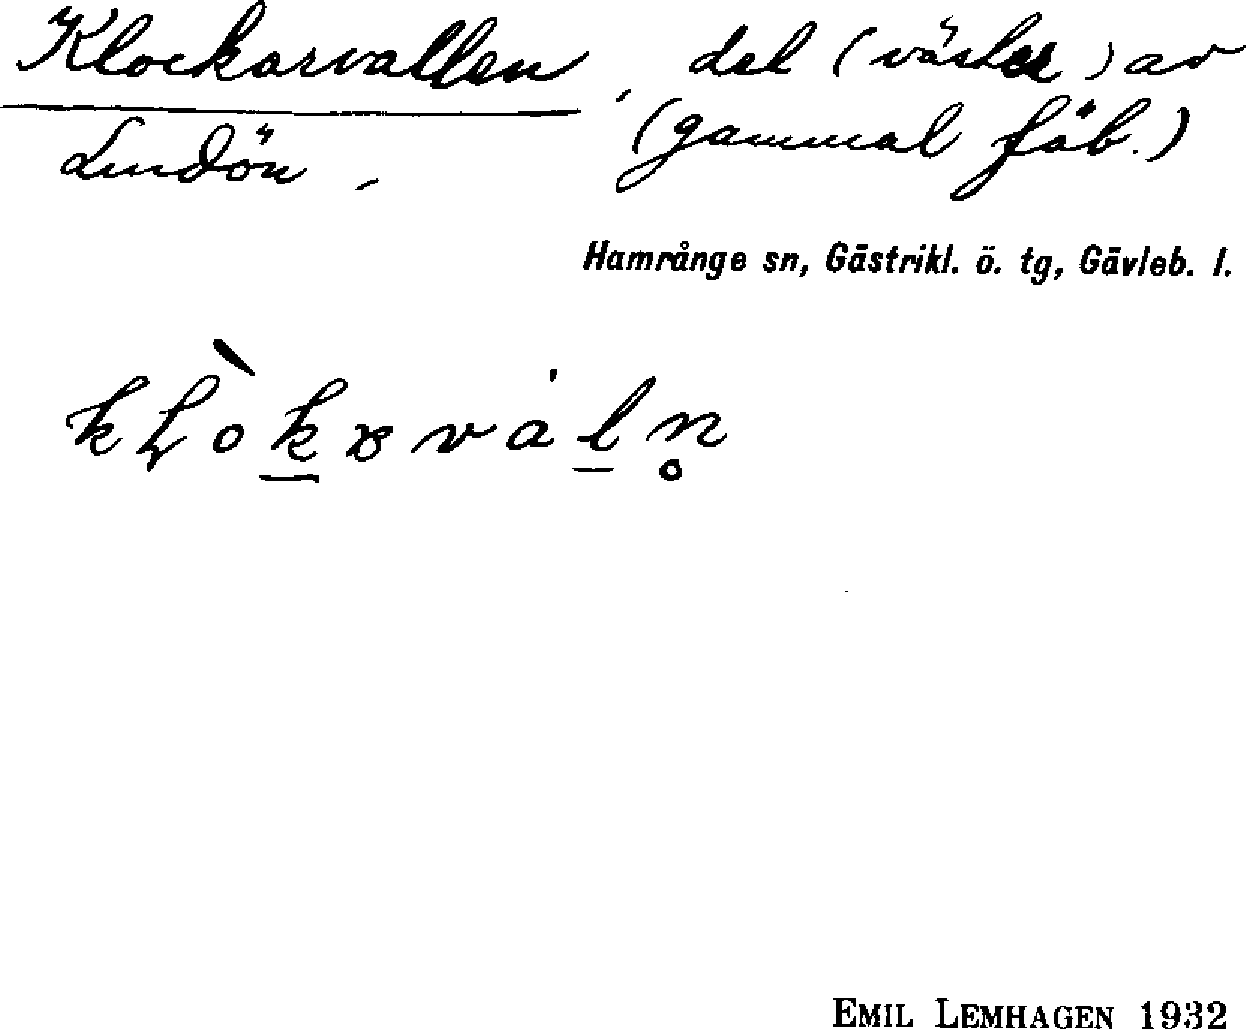 Klockarvallen, del (väster) av
Lindön, (gammal fäb.)
Hamrånge sn, Gästrikl. ö. tg, Gävleb. l.
EMIL LEMHAGEN 1932